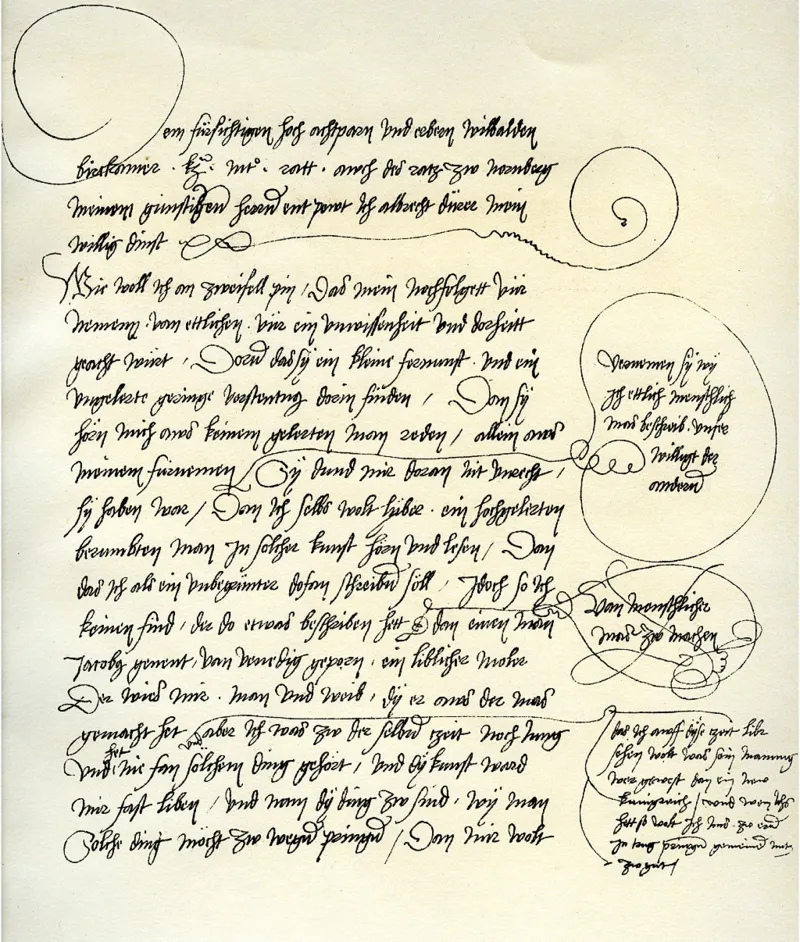 em fürsichtigen hoch achtparn vnd erbern wilbalden
birckamer · k · mt · ratt · auch des ratz zw Nornberg
meinem günstigen herrn entpewt Ich albrecht dürer mein
willig dinst
Wie woll ich an zweifell pin / Das mein nochfolgett vür
nemenn van ettlichen vür ein vnwissenheit vnd dorheitt
geacht würt / Dorum das sy ein kleine fernunft vnd ein
vngelerte geringe verstentnus dorin finden / Dan sy
hörn mich aws keinem gelerten man reden / allein aws
meinem fürnemen / Sy dund mir doran nit vnrecht /
sy haben war / Dan ich selbs wolt lyber ein hochgelerten
berumbten man In solcher kunst hörn vnd lesen / Dan
das ich als ein vnbegrünter dofan schreiben söll / Idoch so ich
keinen find / der do etwas beschriben hett dan einen man
Jacobus genent / van venedig geporn / ein liblicher moler
Der wies mir · man vnd weib / dy er aws der mas
gemacht het / aber Ich was zw der selben czeit noch Jung
vnd het nie fan solchem ding gehört / vnd dy kunst ward
mir fast liben / vnd nam dy ding zw sind / wy man
Solche ding möcht zw wegen pringen / Dan mir wolt
vernemen sy wy
Ich ettlich menschlich
mas beschreib
williget der
andern
van menschlicher
mas zw machen
das ich awff dyse czeit liber
sehen wolt was sein mainung
wer gewest dan ein new
künigreich / vnd wen ichs
hett so wolt Ich Ims zw eren
In trug pringen gemeinem nutz
zw gut /